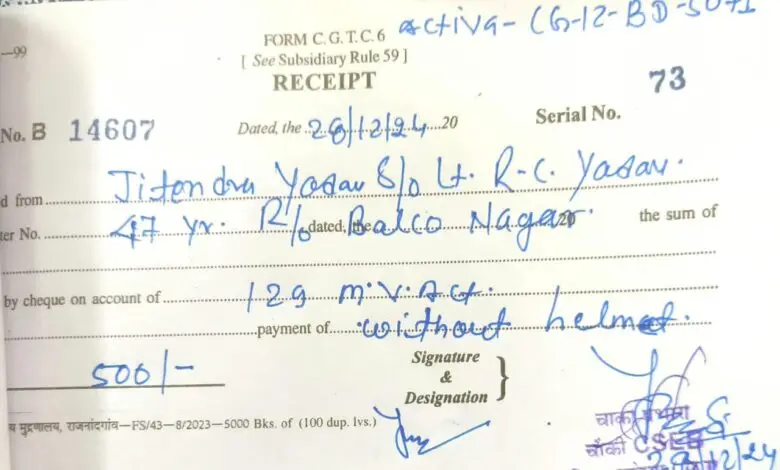 activa- CG-12-BD-5071
FORM C.G.T.C.6
—99
[ See Subsidiary Rule 59 ]
RECEIPT
73
No. B 14607 Dated, the 28/12/24 20 Serial No.
d from Jitendra Yadav S/o Lt. R-C. Yadav.
ter No. 47 yr. R/o dated, the Balco Nagar. 20 the sum of
by cheque on account of 129 M.V.Act.
payment of without helmet.
500/-
Signature
&
Designation
य मुद्रणालय, राजनांदगांव—FS/43—8/2023—5000 Bks. of (100 dup. lvs.)
चौकी CSEB
28/12/24